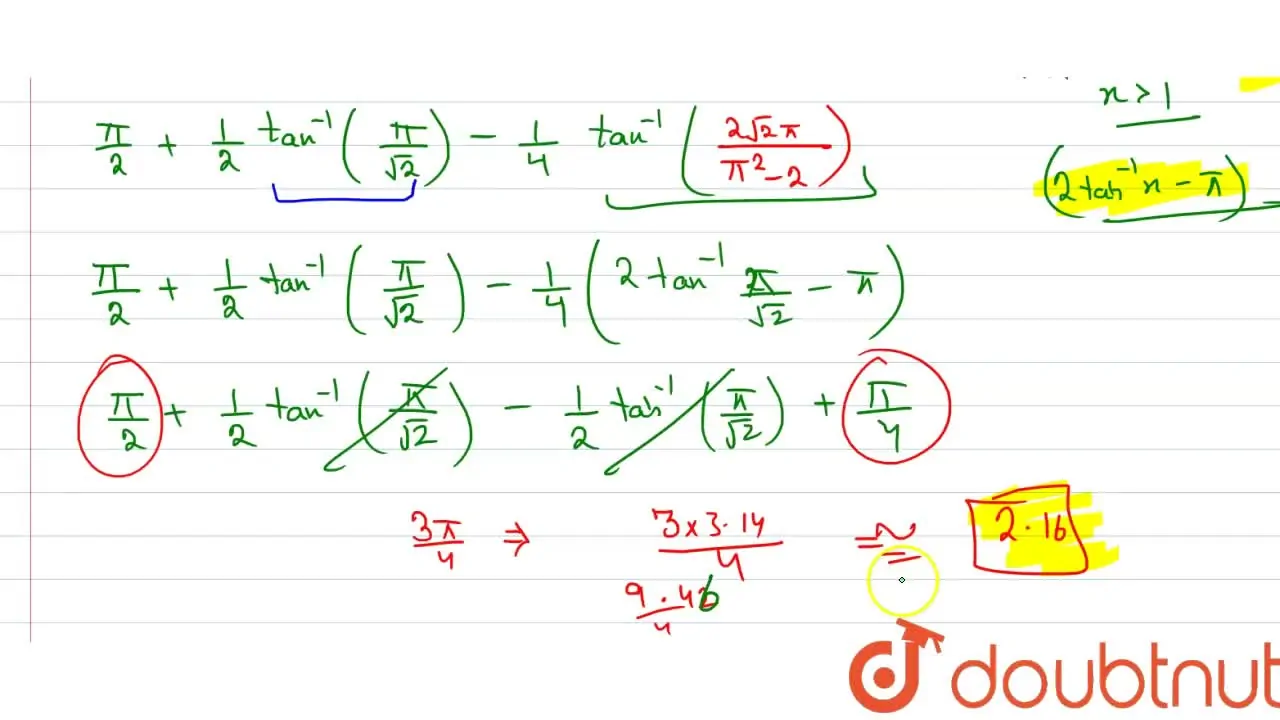 n > 1
π/2 + 1/2 tan⁻¹(π/√2) - 1/4 tan⁻¹(2√2π/(π²-2))
(2tan⁻¹n - π)
π/2 + 1/2 tan⁻¹(π/√2) - 1/4 (2 tan⁻¹ π/√2 - π)
π/2 + 1/2 tan⁻¹(π/√2) - 1/2 tan⁻¹(π/√2) + π/4
3π/4 ⇒ 3×3·14/4 ≃ 2·16
9·42/4
doubtnut